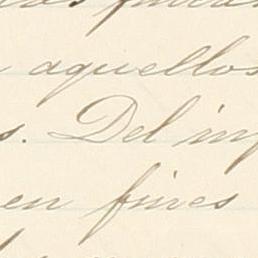 aquellos
s. Del im
en fines